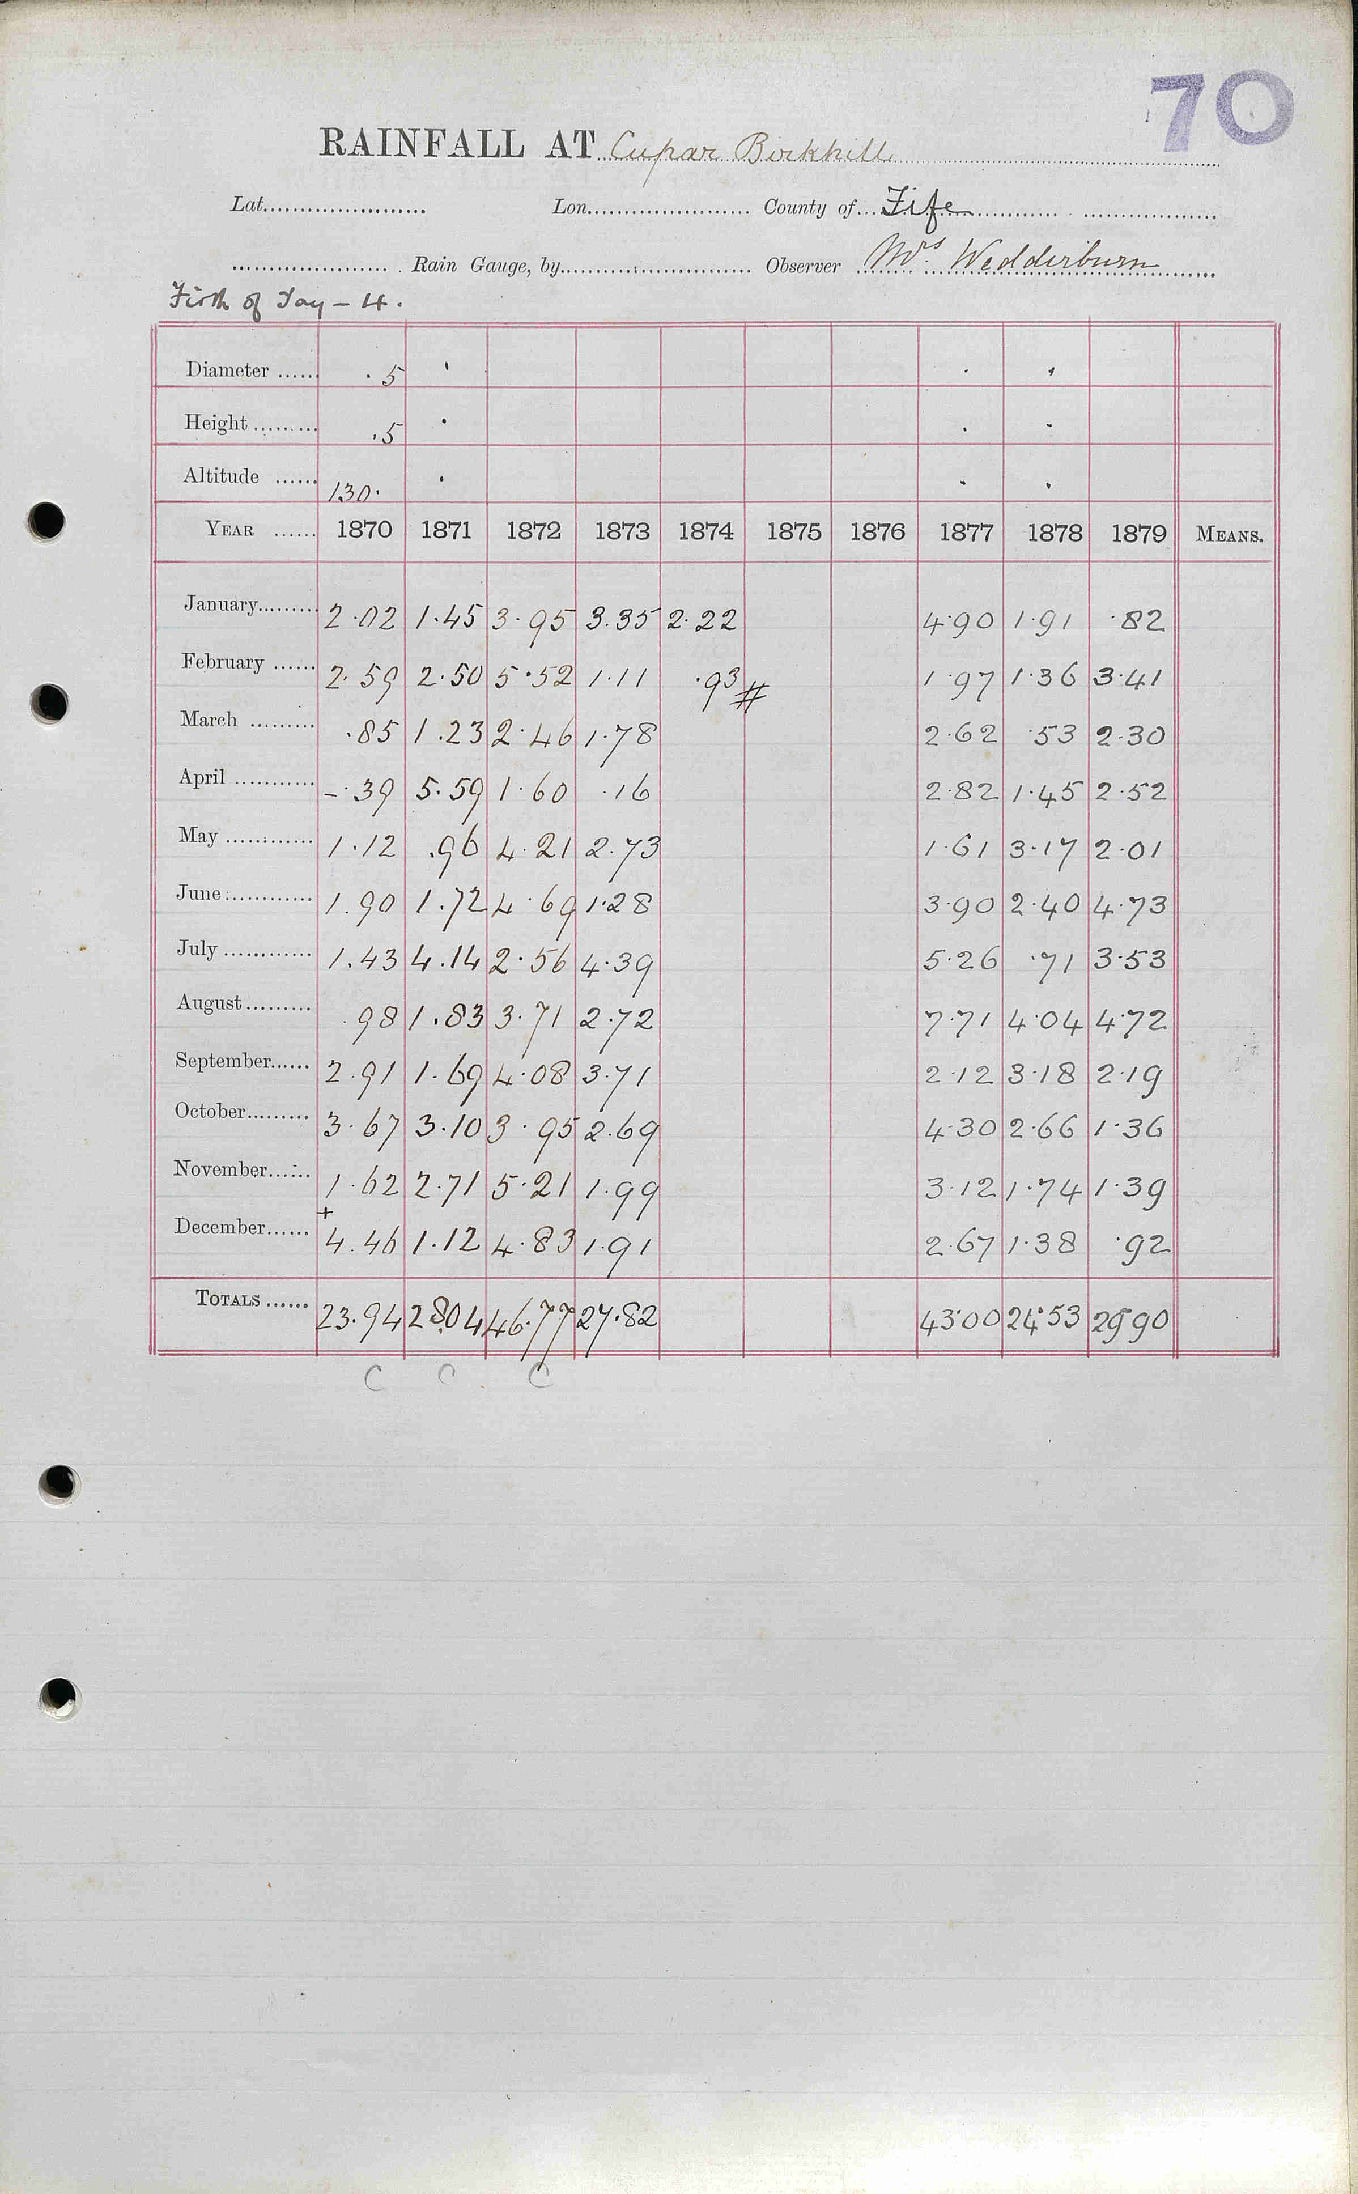 70
RAINFALL AT Cupar Birkhill
Lat. Lon. County of Fife
Rain Gauge, by Observer Mrs Wedderburn
Firth of Tay – 4.
Diameter ...... .5 . . .
Height ......... .5 . . .
Altitude ...... 130. . . .
YEAR ...... 1870 1871 1872 1873 1874 1875 1876 1877 1878 1879 MEANS.
January......... 2.02 1.45 3.95 3.35 2.22 4.90 1.91 .82
February ...... 2.59 2.50 5.52 1.11 .93 # 1.97 1.36 3.41
March ......... .85 1.23 2.46 1.78 2.62 .53 2.30
April ............ -.39 5.59 1.60 .16 2.82 1.45 2.52
May ............. 1.12 .96 4.21 2.73 1.61 3.17 2.01
June ............. 1.90 1.72 4.69 1.28 3.90 2.40 4.73
July ............. 1.43 4.14 2.56 4.39 5.26 .71 3.53
August ......... .98 1.83 3.71 2.72 7.71 4.04 4.72
September...... 2.91 1.69 4.08 3.71 2.12 3.18 2.19
October......... 3.67 3.10 3.95 2.69 4.30 2.66 1.36
November...... 1.62 2.71 5.21 1.99 3.12 1.74 1.39
December...... + 4.46 1.12 4.83 1.91 2.67 1.38 .92
TOTALS ...... 23.94 28.04 46.77 27.82 43.00 24.53 29.90
C C. C